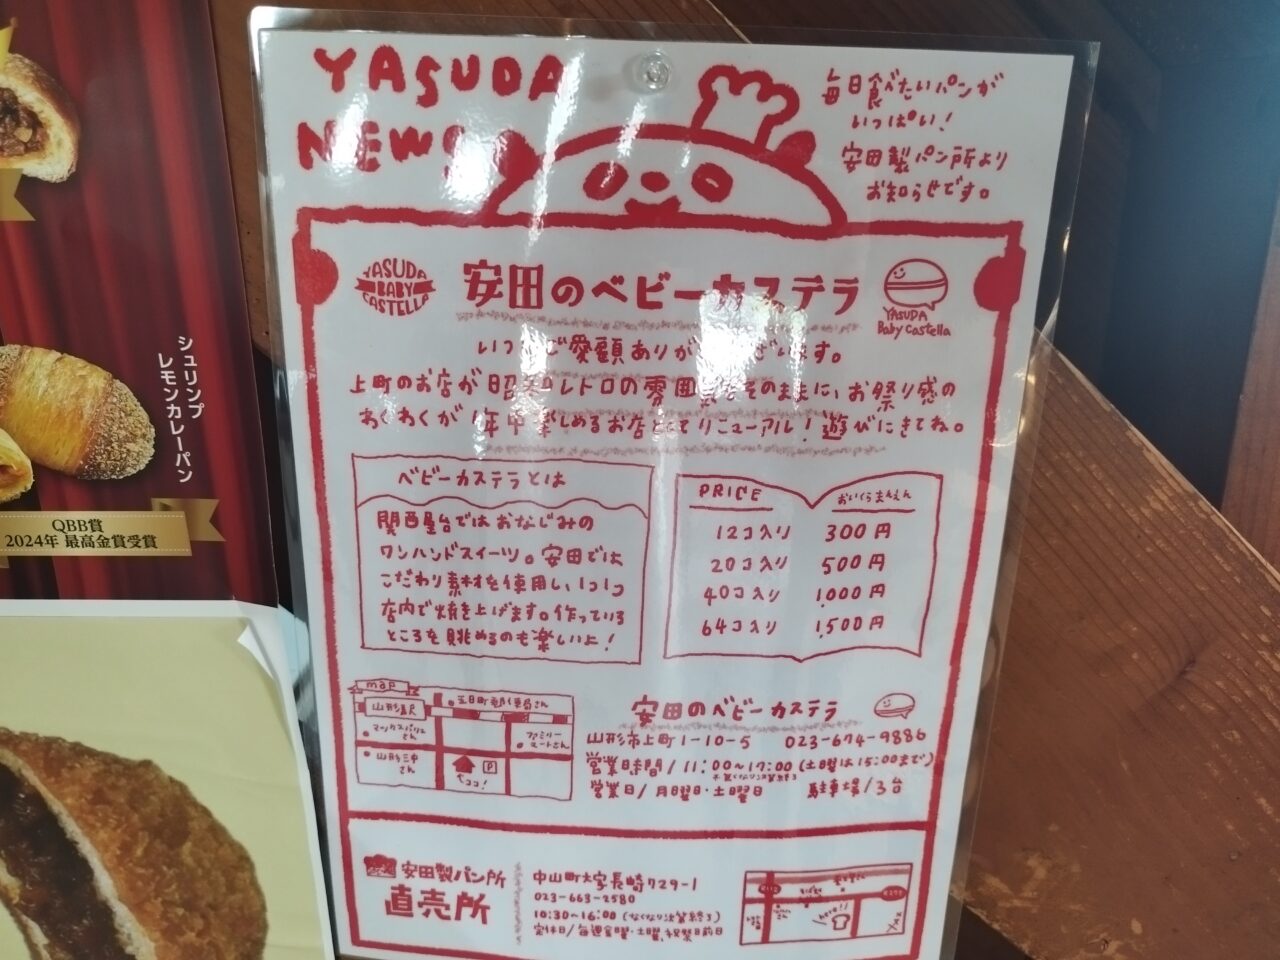 YASUDA
NEWS
毎日食べたいパンが
いっぱい!
安田製パン所より
お知らせです。
YASUDA
BABY
CASTELLA
安田のベビーカステラ
YASUDA
Baby Castella
いつもご愛顧ありがとうございます。
上町のお店が昭和レトロの雰囲気をそのままに、お祭り感の
わくわくが1年中楽しめるお店としてリニューアル!遊びにきてね。
ベビーカステラとは
関西屋台ではおなじみの
ワンハンドスイーツ。安田では
こだわり素材を使用し、1つ1つ
店内で焼き上げます。作っている
ところを眺めるのも楽しいよ!
PRICE おいくらまんえん
12コ入り 300円
20コ入り 500円
40コ入り 1,000円
64コ入り 1,500円
map
山形駅
五日町郵便局さん
マックスバリュ
さん
ファミリー
マートさん
山形三中
さん
P
ココ!
安田のベビーカステラ
山形市上町1-10-5 023-674-9886
営業時間/11:00~17:00(土曜は15:00まで)
※無くなり次第終了
営業日/月曜日・土曜日 駐車場/3台
安田製パン所
直売所
中山町大字長崎729-1
023-663-2580
10:30~16:00(なくなり次第終了)
定休日/毎週金曜・土曜、祝祭日前日
here!!
シュリンプ
レモンカレーパン
QBB賞
2024年 最高金賞受賞